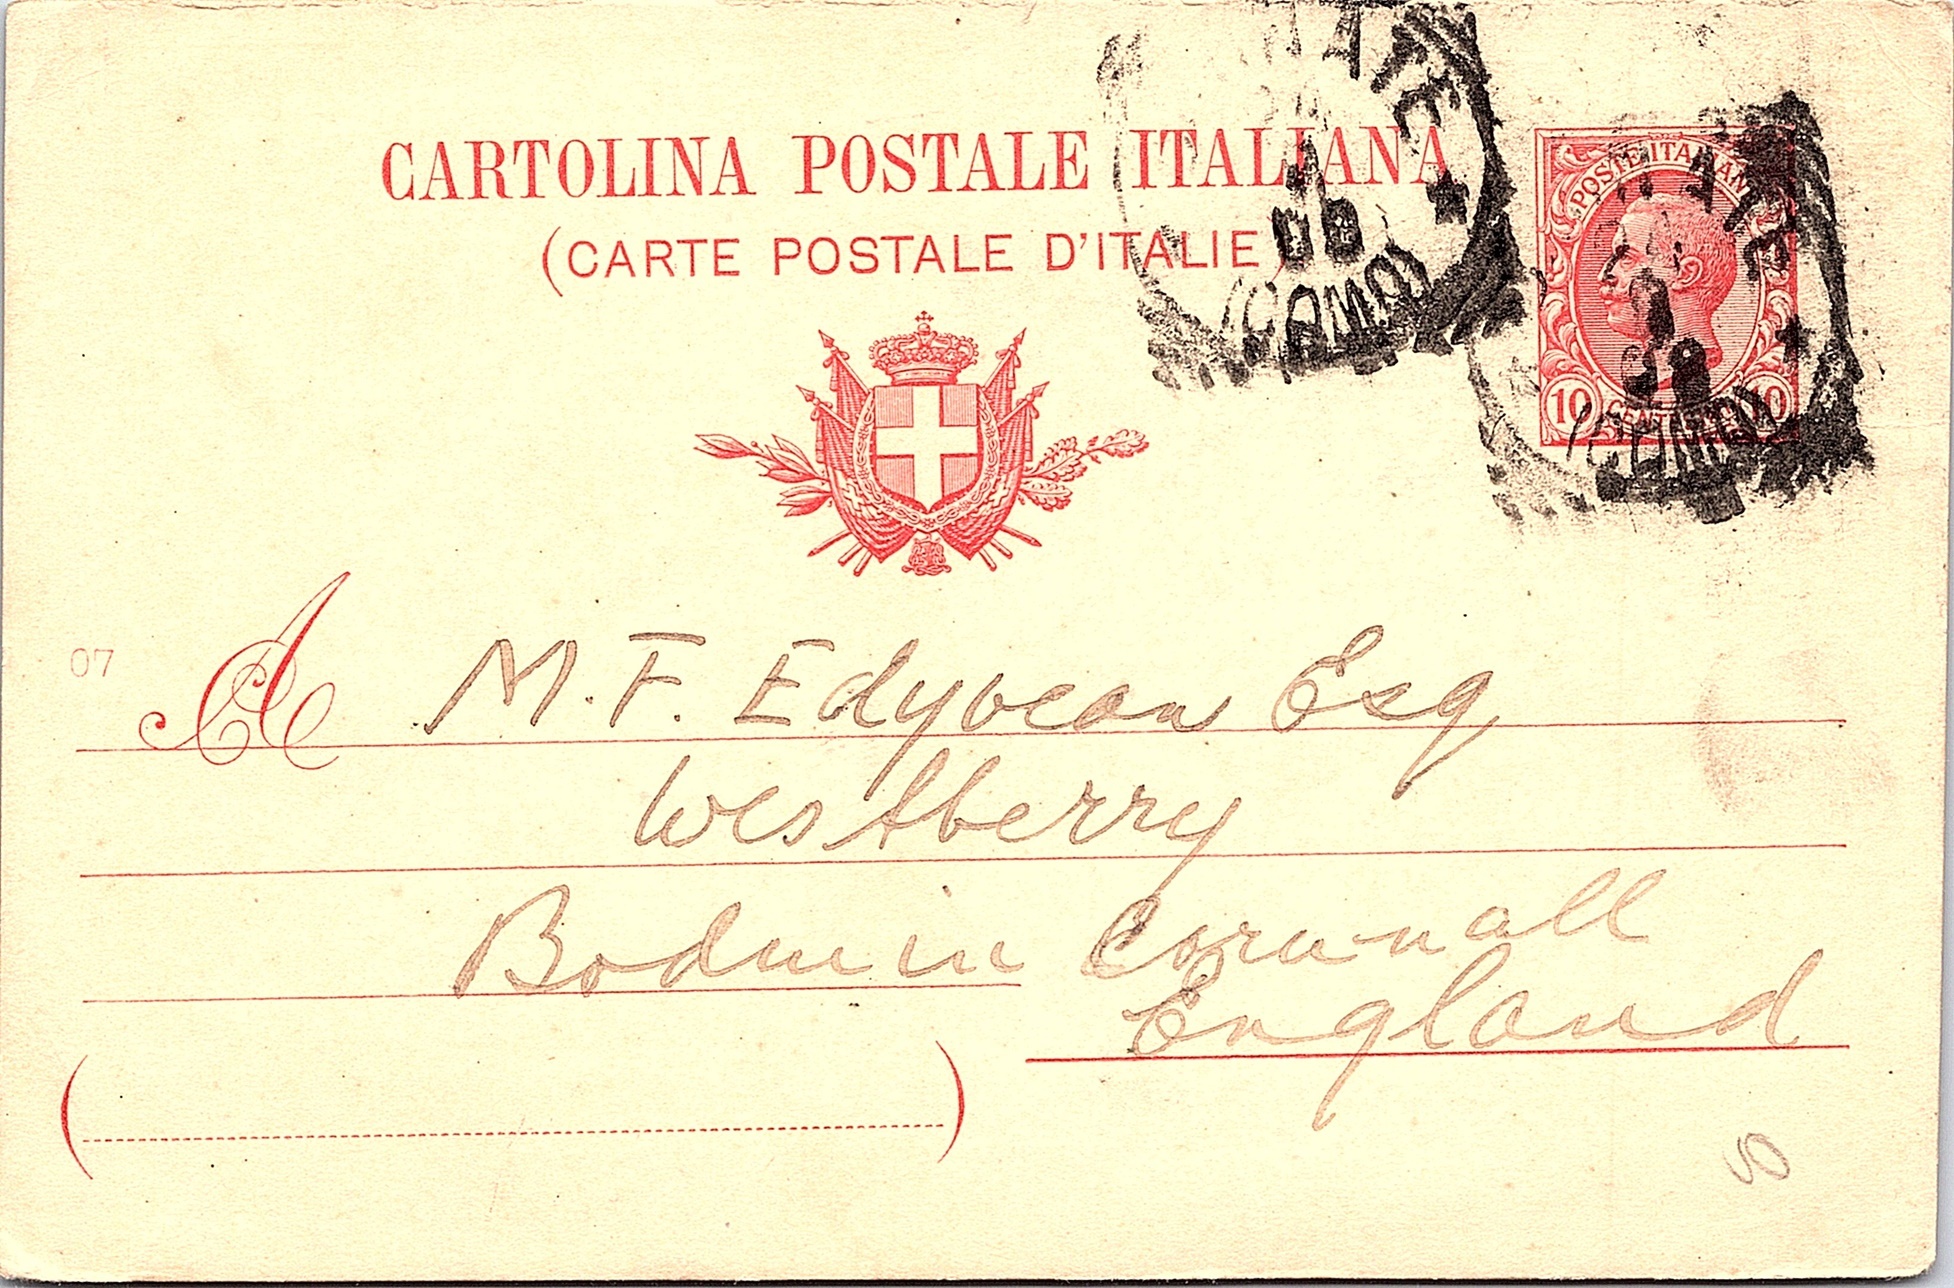 CARTOLINA POSTALE ITALIANA
(CARTE POSTALE D'ITALIE)
POSTE ITALIANE
10 CENTESIMI 10
ATE
08
(COMO)
ATE
08
(COMO)
07
A M. F. Edyvean Esq
Westberry
Bodmin Cornwall
England
50